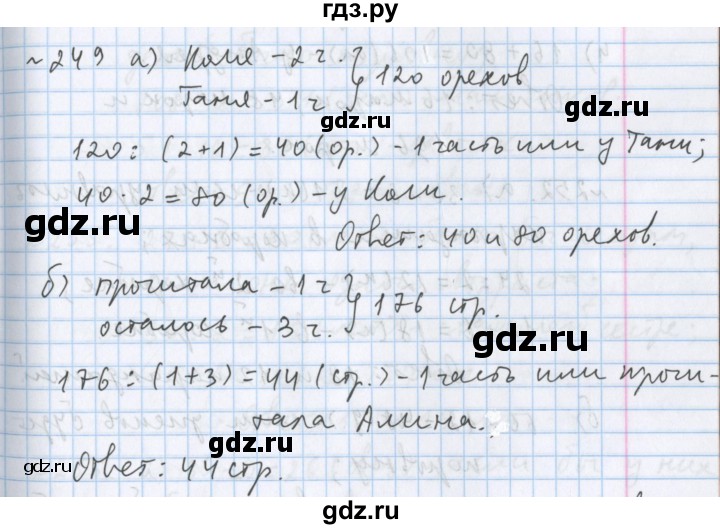 гдз.ру
№249 а) Коля – 2 ч. } 120 орехов
Таня – 1 ч
gdz.ru
gdz.ru
120 : (2+1) = 40 (ор.) – 1 часть или у Тани;
40 · 2 = 80 (ор.) – у Коли.
gdz.ru
Ответ: 40 и 80 орехов.
gdz.ru
б) прочитала – 1 ч } 176 стр.
осталось – 3 ч.
gdz.ru
176 : (1+3) = 44 (стр.) – 1 часть или прочи-
тала Алина.
gdz.ru
gdz.ru
Ответ: 44 стр.
gdz.ru
gdz.ru